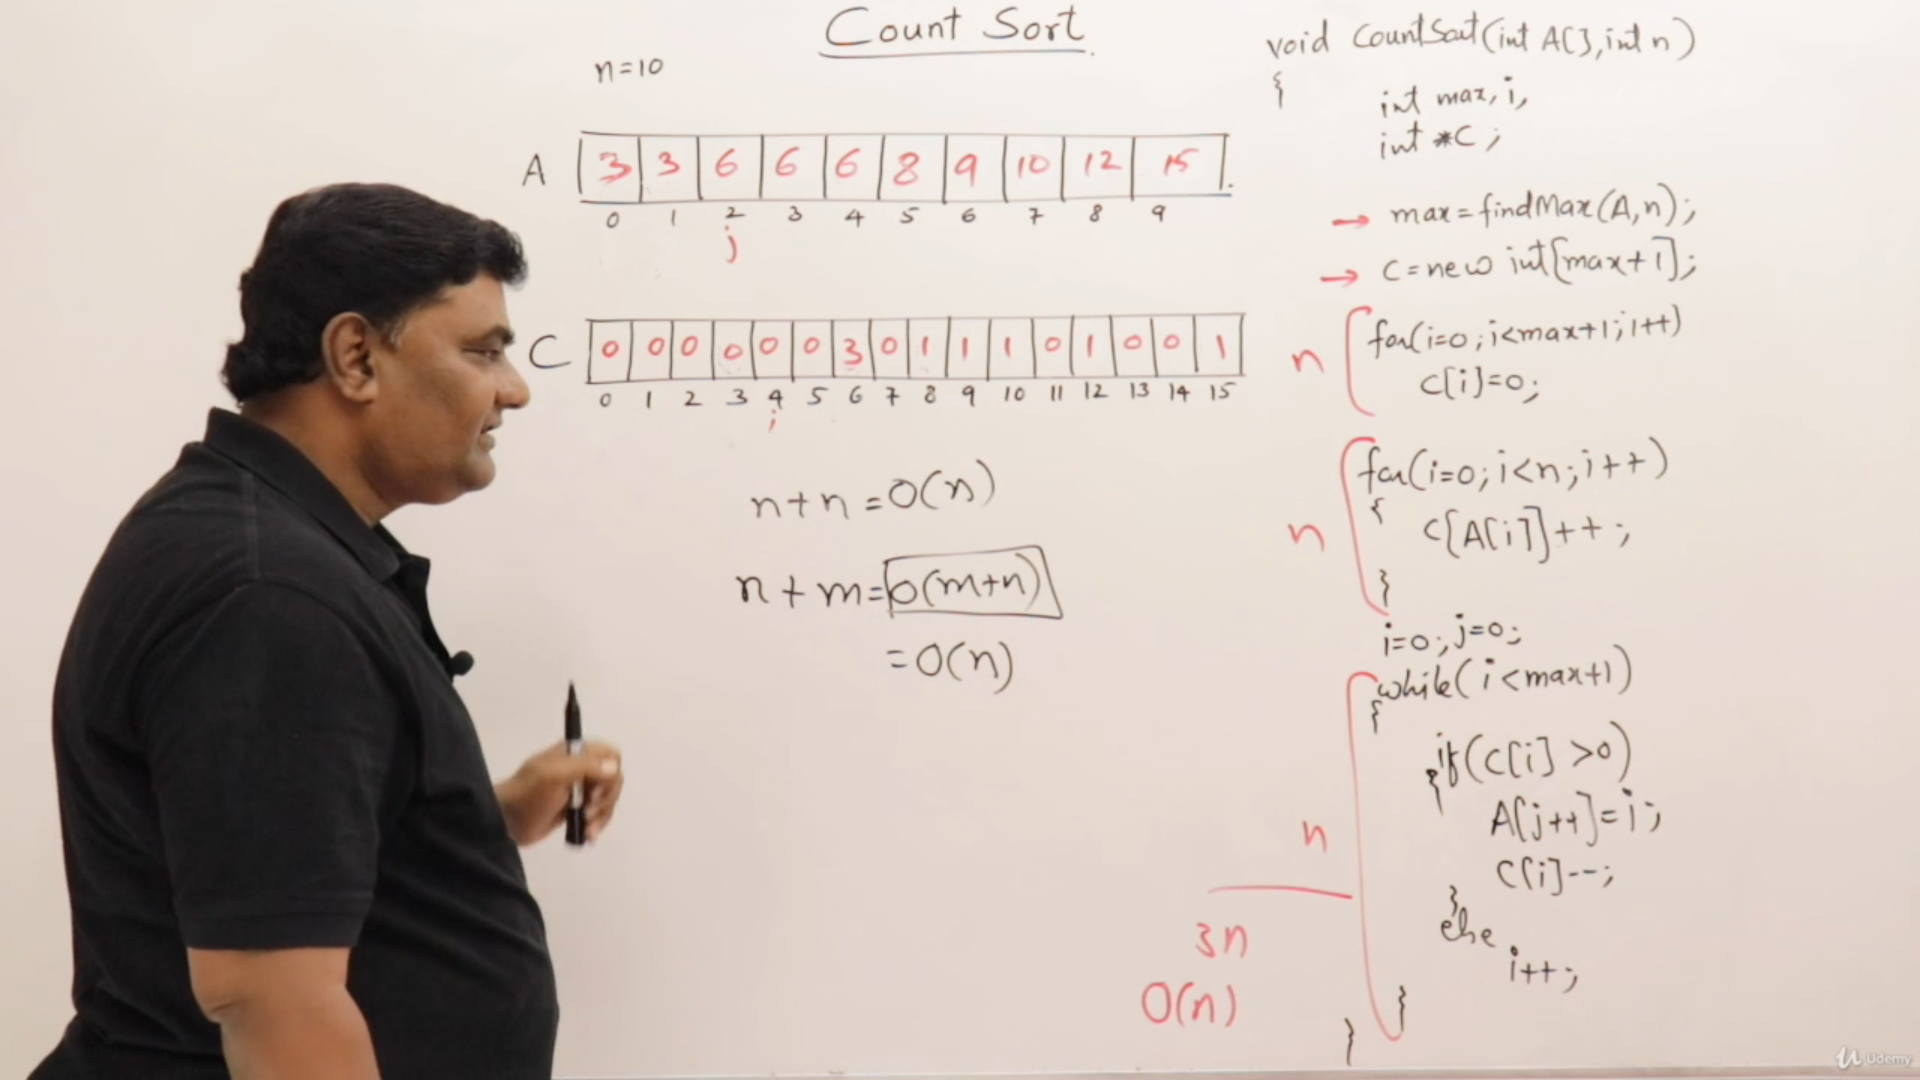 Count Sort
n=10
A 3 3 6 6 6 8 9 10 12 15
0 1 2 3 4 5 6 7 8 9
j
C 0 0 0 0 0 0 3 0 1 1 1 0 1 0 0 1
0 1 2 3 4 5 6 7 8 9 10 11 12 13 14 15
i
n+n=O(n)
n+m=O(m+n)
=O(n)
void CountSort(int A[],int n)
{
int max,i,
int *C;
→ max=findMax(A,n);
→ C=new int[max+1];
for(i=0;i<max+1;i++)
n
C[i]=0;
for(i=0;i<n;i++)
{
n
C[A[i]]++;
}
i=0;j=0;
while(i<max+1)
{
if(C[i]>0)
{
A[j++]=i;
n
C[i]--;
}
else
3n
i++;
O(n)
}
}
Udemy